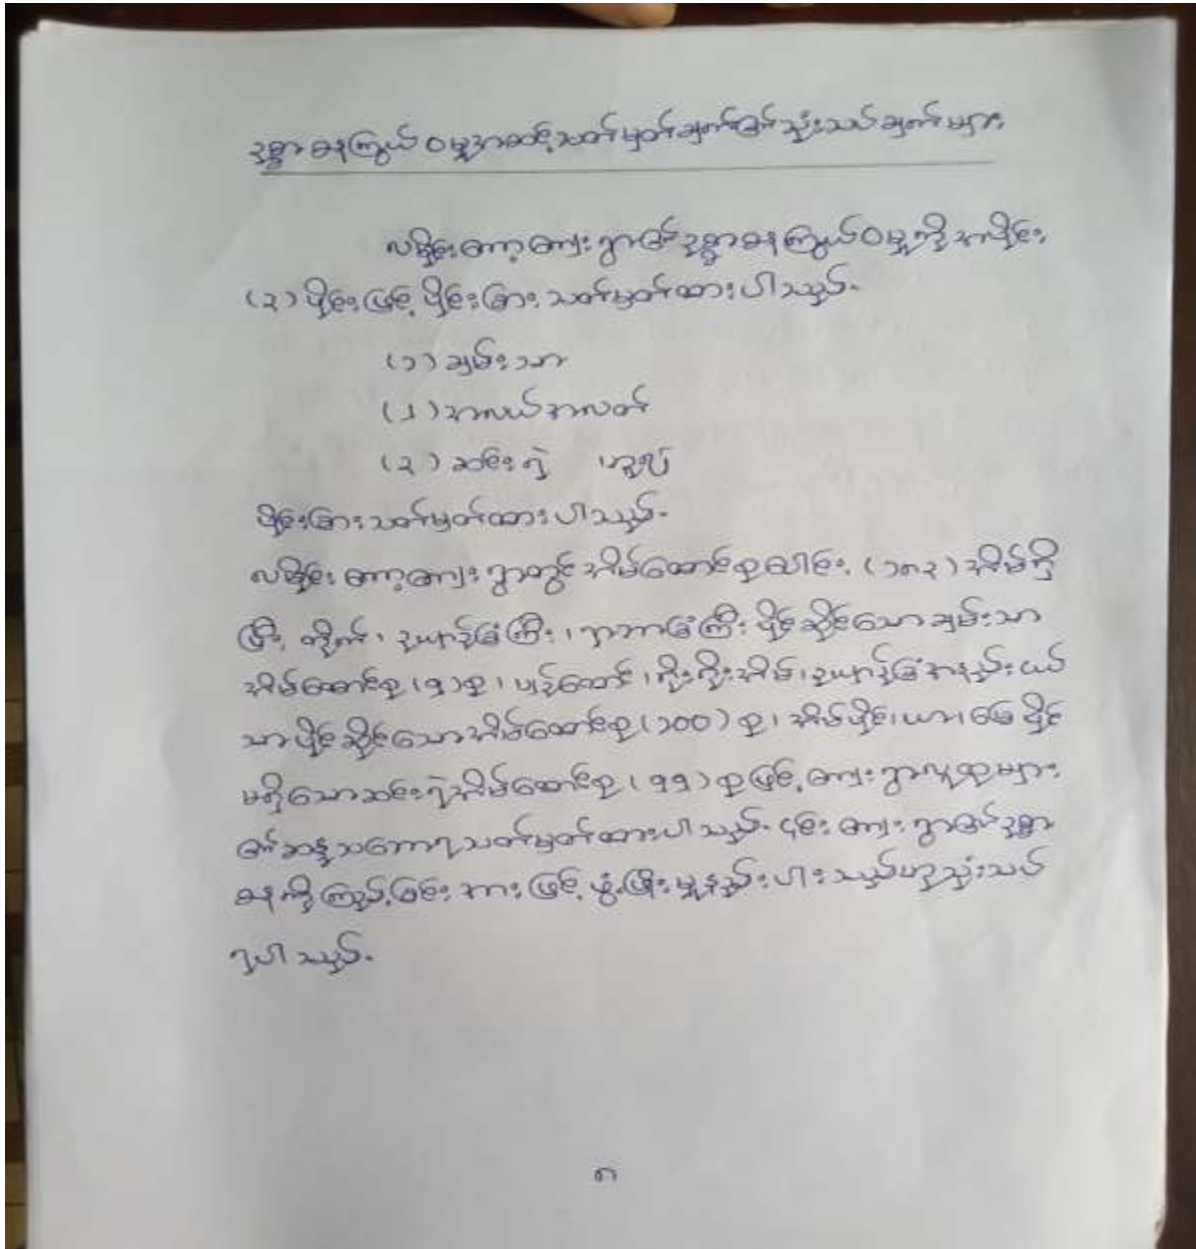 ဥစ္စာဓနကြွယ်ဝမှုအဆင့်သတ်မှတ်ချက်၏သုံးသပ်ချက်များ
လမိုင်းကော့ကျေးရွာ၏ဥစ္စာဓနကြွယ်ဝမှုကိုအပိုင်း
(၃) ပိုင်းဖြင့် ပိုင်းခြားသတ်မှတ်ထားပါသည်။
(၁) ချမ်းသာ
(၂) အလယ်အလတ်
(၃) ဆင်းရဲ ဟူ၍
ပိုင်းခြားသတ်မှတ်ထားပါသည်။
လမိုင်းကော့ကျေးရွာတွင် အိမ်ထောင်စုပေါင်း (၁၈၃) အိမ်ရှိ
ပြီး တိုက်၊ ဥယျာဉ်ခြံကြီး၊ ရာဘာခြံကြီး ပိုင်ဆိုင်သောချမ်းသာ
အိမ်ထောင်စု (၅) စု၊ ပျဉ်ထောင်၊ ရိုးရိုးအိမ်၊ ဥယျာဉ်ခြံအနည်းငယ်
သာပိုင်ဆိုင်သောအိမ်ထောင်စု (၁၀၀) စု၊ အိမ်ပိုင်၊ ယာ၊ မြေပိုင်
မရှိသောဆင်းရဲအိမ်ထောင်စု (၅၅) စုဖြင့် ကျေးရွာလူထုများ
၏ဆန္ဒသဘောရသတ်မှတ်ထားပါသည်။ ၎င်းကျေးရွာ၏ဥစ္စာ
ဓနကိုကြည့်ခြင်းအားဖြင့် ဖွံ့ဖြိုးမှုနည်းပါးသည်ဟုသုံးသပ်
ရပါသည်။